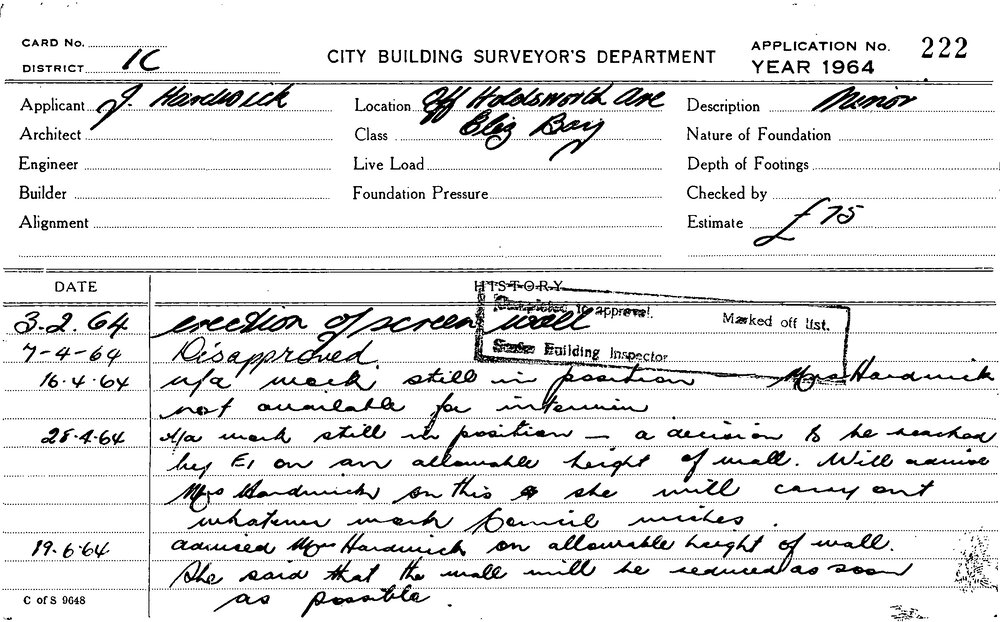 CARD No.
DISTRICT 1C
CITY BUILDING SURVEYOR'S DEPARTMENT
APPLICATION No. 222
YEAR 1964
Applicant J. Hardwick
Location Off Holdsworth Ave
Description Minor
Architect
Class Eliz Bay
Nature of Foundation
Engineer
Live Load
Depth of Footings
Builder
Foundation Pressure
Checked by
Alignment
Estimate £75
DATE
HISTORY
3.2.64 erection of screen wall
to approval. Marked off list.
7-4-64 Disapproved.
Building Inspector
16.4.64 u/a work still in position Mrs Hardwick
not available for interview
28.4.64 u/a work still in position — a decision to be reached
by E1 on an allowable height of wall. Will advise
Mrs Hardwick on this & she will carry out
whatever work Council wishes.
19.6.64 advised Mrs Hardwick on allowable height of wall.
She said that the wall will be reduced as soon
as possible.
C of S 9648